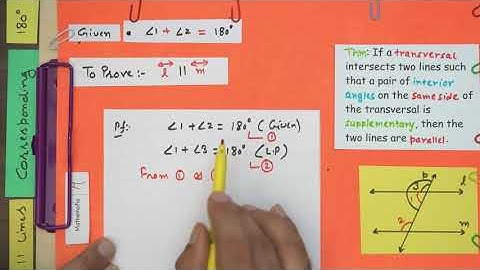 180°
Corresponding
11 Lines
Mathematics
Given • ∠1 + ∠2 = 180°
To Prove:- l || m
Pf:
∠1 + ∠2 = 180° (Given)
①
∠1 + ∠3 = 180° (L.P)
②
From ① &
Thm: If a transversal
intersects two lines such
that a pair of interior
angles on the same side of
the transversal is
supplementary, then the
two lines are parallel.
P
3
1
l
2
m